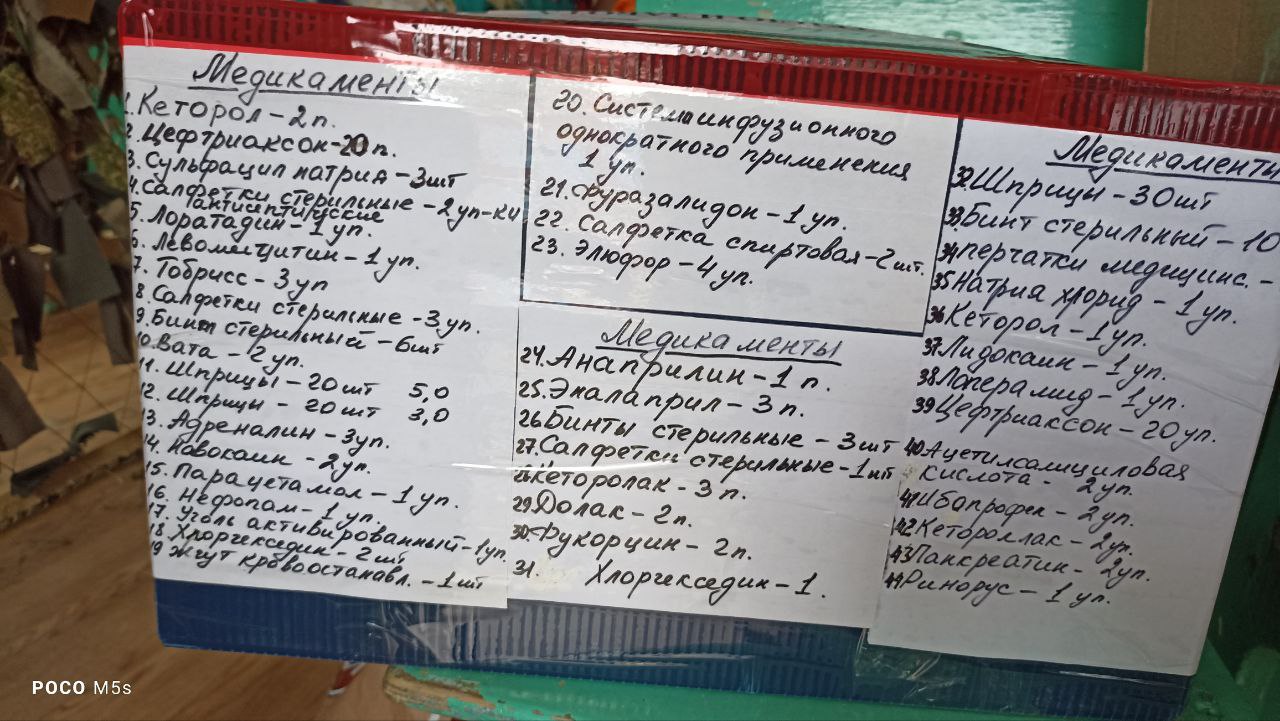 Медикаменты
1. Кеторол - 2 п.
2. Цефтриаксон - 20 п.
3. Сульфацил натрия - 3 шт
4. Салфетки стерильные - 2 уп-ки
антисептические
5. Лоратадин - 1 уп.
6. Левомицитин - 1 уп.
7. Тобрисс - 3 уп
8. Салфетки стерильные - 3 уп.
9. Бинт стерильный - 6 шт
10. Вата - 2 уп.
11. Шприцы - 20 шт 5,0
12. Шприцы - 20 шт 3,0
13. Адреналин - 3 уп.
14. Новокаин - 2 уп.
15. Парацетамол - 1 уп.
16. Нефопам - 1 уп.
17. Уголь активированный - 1 уп.
18. Хлоргекседин - 2 шт
19 Жгут кровоостанавл. - 1 шт
20. Система инфузионного
однократного применения
1 уп.
21. Фуразалидон - 1 уп.
22. Салфетка спиртовая - 2 шт.
23. Элюфор - 4 уп.
Медикаменты
24. Анаприлин - 1 п.
25. Эналаприл - 3 п.
26 Бинты стерильные - 3 шт
27. Салфетки стерильные - 1 шт
28 Кеторолак - 3 п.
29 Долак - 2 п.
30. Фукорцин - 2 п.
31. Хлоргекседин - 1.
Медикаменты
32. Шприцы - 30 шт
33. Бинт стерильный - 10
34 перчатки медицинс. -
35 Натрия хлорид - 1 уп.
36 Кеторол - 1 уп.
37 Лидокаин - 1 уп.
38 Лоперамид - 1 уп.
39 Цефтриаксон - 20 уп.
40 Ацетилсалициловая
кислота - 2 уп.
41 Ибапрофек - 2 уп.
42 Кетороллак - 2 уп.
43 Панкреатин - 2 уп.
44 Ринорус - 1 уп.
POCO M5s